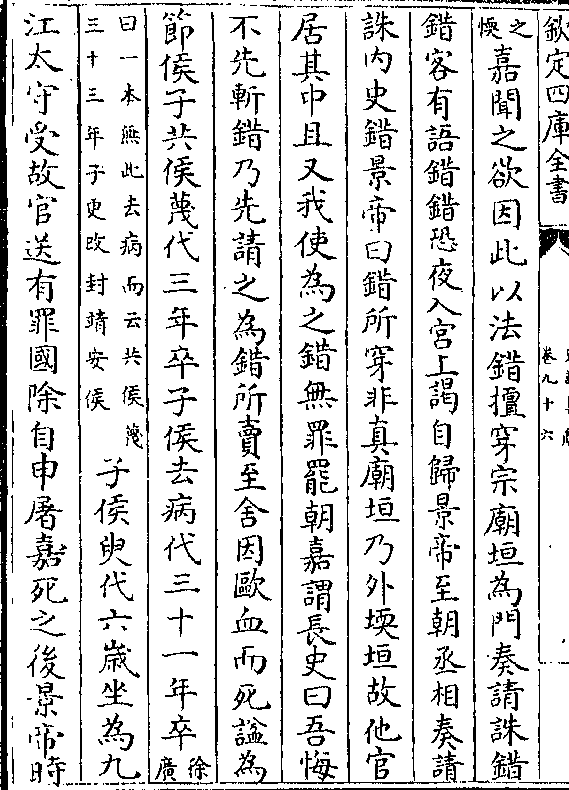 欽定四庫全書
卷九十六
之
愞
嘉聞之欲因此以法錯擅穿宗廟垣為門奏請誅錯
錯客有語錯錯恐夜入宮上謁自歸景帝至朝丞相奏請
誅内史錯景帝曰錯所穿非真廟垣乃外堧垣故他官
居其中且又我使為之錯無罪罷朝嘉謂長史曰吾悔
不先斬錯乃先請之為錯所賣至舍因歐血而死謚為
節侯子共侯蔑代三年卒子侯去病代三十一年卒
徐廣
曰一本無此去病而云共侯蔑
三十三年子㬰改封靖安侯
子侯㬰代六歲坐為九
江太守受故官送有罪國除自申屠嘉死之後景帝時